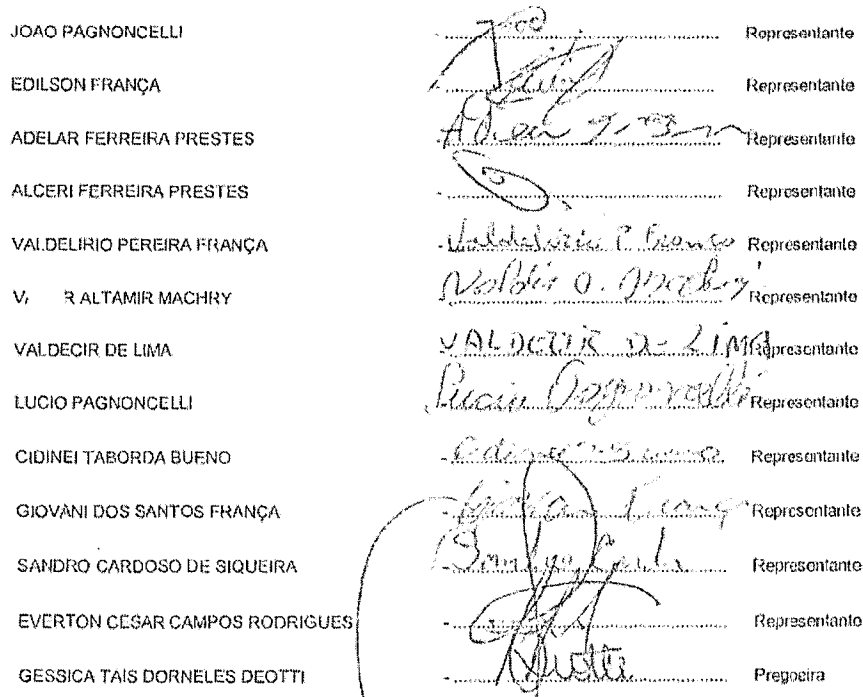 JOAO PAGNONCELLI Joao Representante
EDILSON FRANÇA Representante
ADELAR FERREIRA PRESTES Representante
ALCERI FERREIRA PRESTES Representante
VALDELIRIO PEREIRA FRANÇA Valdelirio P França Representante
V R ALTAMIR MACHRY Representante
VALDECIR DE LIMA VALDECIR DE LIMA Representante
LUCIO PAGNONCELLI Lucio Pagnoncelli Representante
CIDINEI TABORDA BUENO Representante
GIOVANI DOS SANTOS FRANÇA Giovani França Representante
SANDRO CARDOSO DE SIQUEIRA Representante
EVERTON CESAR CAMPOS RODRIGUES Representante
GESSICA TAIS DORNELES DEOTTI Deotti Pregoeira